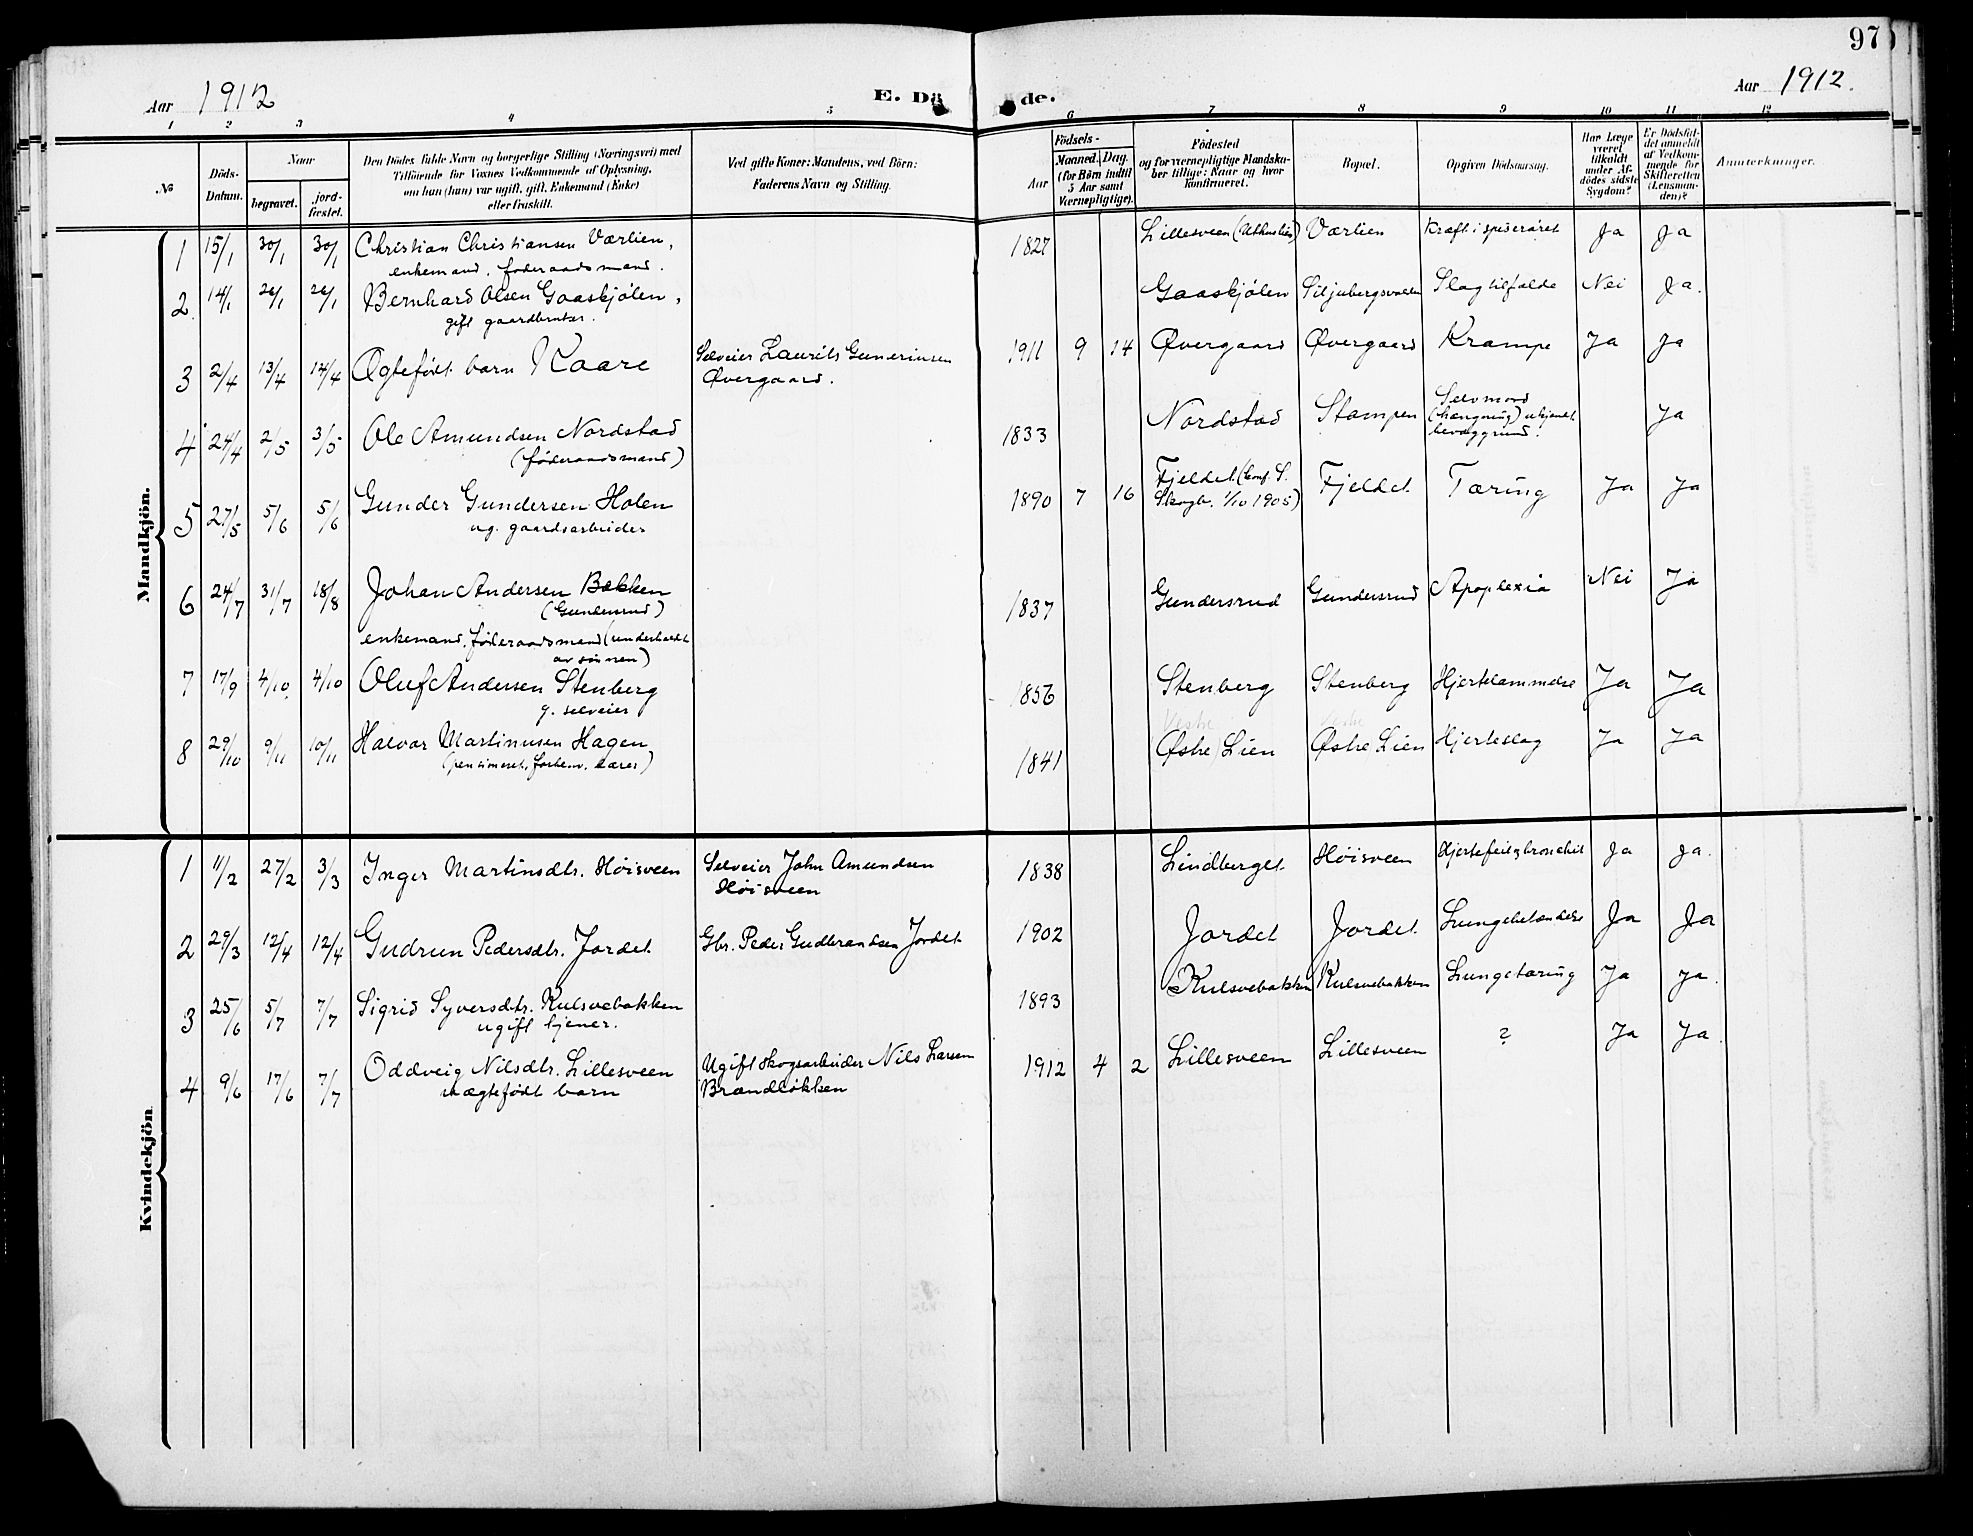 97
Aar 1912
E. Dö de.
Aar 1912.
1 2 3 4 5 6 7 8 9 10 11 12
№
Döds-Datum.
Naar
begravet.
jord-fæstet.
Den Dödes fulde Navn og borgerlige Stilling (Næringsvei) med
Tilföiende for Voxnes Vedkommende af Oplysning,
om han (hun) var ugift, gift, Enkemand (Enke)
eller fraskilt.
Ved gifte Koner: Mandens, ved Börn:
Faderens Navn og Stilling.
Födsels-
Aar
Maaned. Dag.
(for Börn indtil
5 Aar samt
Værnepligtige).
Födested
og for værnepligtige Mandska-
ber tillige: Naar og hvor
konfirmeret.
Bopæl.
Opgiven Dödsaarsag.
Har Læge
været
tilkaldt
under Af-
dödes sidste
Sygdom?
Er Dödsfal-
det anmeldt
af Vedkom-
mende for
Skifteretten
(Lensman-
den)?
Anmærkninger.
Mandkjön.
1 15/1 30/1 30/1 Christian Christiansen Værlien, 1827 Lillesveen (Uthuslien) Værlien Kræft i spiserøret Ja Ja
enkemand, føderaadsmand.
2. 14/1 26/1 26/1 Bernhard Olsen Gaaskjølen, Gaaskjølen Siljubergsvollen Slagtilfælde Nei Ja.
gift gaardbruker.
3 2/4 13/4 14/4 Ægtefødt barn Kaare Selveier Laurits Gunerinsen 1911 9 14 Øvergaard Øvergaard Krampe Ja Ja
Øvergaard.
4 24/4 2/5 3/5 Ole Amundsen Nordstad 1833 Nordstad Stampen Selvmord Ja
(føderaadsmand) (hængning) ukjendt
bevæggrund.
5 27/5 5/6 5/6 Gunder Gundersen Holen 1890 7 16 Fjeldet (konf. S. Fjeldet Tæring Ja Ja
ug. gaardsarbeider Skogb. 1/10 1905)
6 24/7 31/7 18/8 Johan Andersen Bækken 1837 Gundersrud Gundersrud Apoplexia Nei Ja
(Gundersrud)
enkemand, føderaadsmand (underholdt
av sønnen)
7 17/9 4/10 4/10 Oluf Andersen Stenberg 1856 Stenberg Stenberg Hjertelammelse Ja Ja
g. selveier
Vestre Vestre
8 29/10 9/11 10/11 Halvor Martinusen Hagen 1841 Østre Lien Østre Lien Hjerteslag Ja Ja
(pensioneret, forhenv. lærer)
Kvindekjön
1 11/2 27/2 3/3 Inger Martinsdtr. Høisveen Selveier John Amundsen 1838 Lindberget Høisveen Hjertefeil og bronchit Ja Ja.
Høisveen
2 29/3 12/4 12/4 Gudrun Pedersdtr. Jordet Gbr. Peder Gudbrandsen Jordet 1902 Jordet Jordet Lungebetændelse Ja Ja
3 25/6 5/7 7/7 Sigrid Syversdtr. Kulsvebakken 1893 Kulsvebakken Kulsvebakken Lungetæring Ja Ja.
ugift tjener.
4 9/6 17/6 7/7 Oddveig Nilsdtr. Lillesveen Ugift skogsarbeider Nils Larsen 1912 4 2 Lillesveen Lillesveen ? Ja Ja
uægtefødt barn Brændløkken